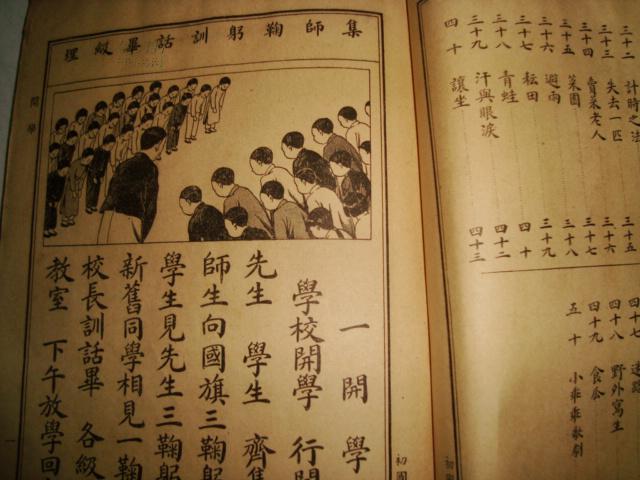 三十二 計時之法
三十三 失去一匹 三十五
三十四 賣菜老人 三十六
三十五 菜園 三十七
三十六 避雨 三十八
三十七 耘田 三十九
三十八 青蛙 四十
三十九 汗與眼淚 四十二
四十 讓坐 四十三
四十七
四十八 野外寫生
四十九 食瓜
五十 小乖乖歌劇
集師鞠躬訓話畢級理
一 開學
學校開學 行開
先生 學生 齊集
師生向國旗三鞠躬
學生見先生三鞠躬
新舊同學相見一鞠
校長訓話畢 各級
教室 下午放學回
開學
初國